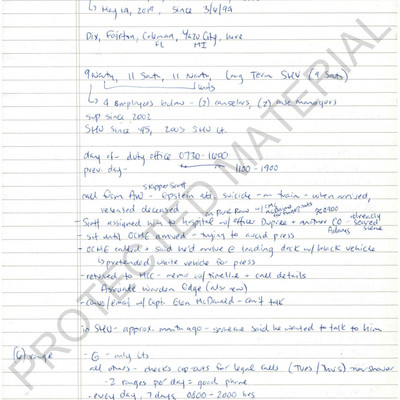 ↳ May 19, 2019, since 3/4/99
Dix, Fairton, Coleman, Yazoo City, here
FL MI
9 North, 11 South, 11 North, Long Term SHU (9 South)
units
↳ 4 employees below - (2) counselors, (2) case managers
sup since 2002
SHU since 4/5, 2005 SHU Lt.
day of - duty office 0730-1600
prev day - 1100-1900
skipper Scott
call from AW - Epstein att. suicide - on train - when arrived,
released deceased
- Scott assigned him to hospital w/ officer Dupree + another CO - already
Adams secured scene
- sit until OCME arrived - trying to avoid press
- OCME called + said he'd arrive @ loading dock w/ black vehicle
↳ pretended white vehicle for press
- returned to MCC - memo w/ timeline + call details
Associate Warden Edge (also new)
- convo/email w/ Capt. Glen McDonald - can't talk
in SHU - approx. month ago - someone said he wanted to talk to him
(6) range - G - only its
all others - checks cop-outs for legal calls (Tues/Thurs) non-shower
- 2 ranges per day = good phone
- every day, 7 days, 0600-2000 hrs
PROTECTED MATERIAL